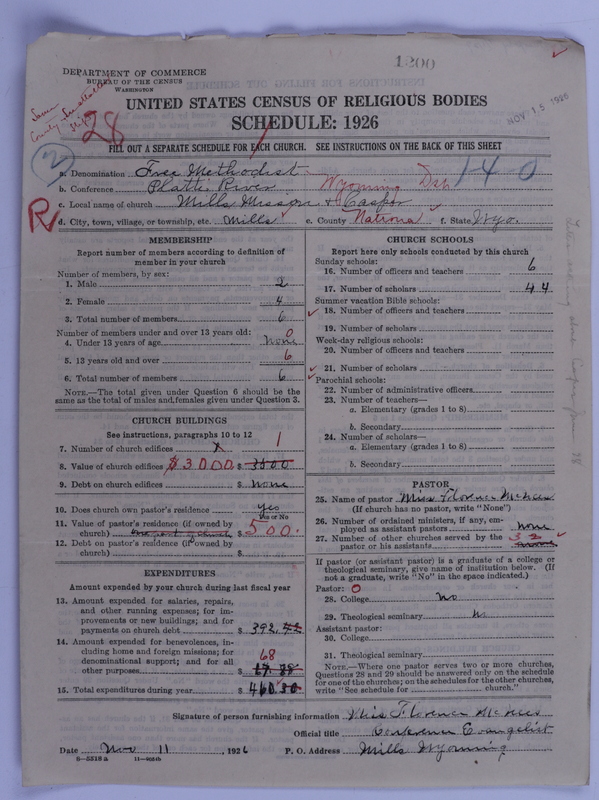 1200
DEPARTMENT OF COMMERCE
BUREAU OF THE CENSUS
WASHINGTON
NOV 15 1926
UNITED STATES CENSUS OF RELIGIOUS BODIES
28
SCHEDULE: 1926
FILL OUT A SEPARATE SCHEDULE FOR EACH CHURCH. SEE INSTRUCTIONS ON THE BACK OF THIS SHEET
2
a. Denomination Free Methodist 140
b. Conference Platte River Wyoming Dist
c. Local name of church Mills Mission & Casper
R
d. City, town, village, or township, etc. Mills e. County Natrona f. State Wyo.
MEMBERSHIP
Report number of members according to definition of
member in your church
Number of members, by sex:
1. Male 2
2. Female 4
3. Total number of members 6
Number of members under and over 13 years old: 0
4. Under 13 years of age none
5. 13 years old and over 6
6. Total number of members 6
NOTE.—The total given under Question 6 should be
same as the total of males and females given under Question 3.
CHURCH BUILDINGS
See instructions, paragraphs 10 to 12
7. Number of church edifices 1
8. Value of church edifices $3000 $ 3500
9. Debt on church edifices $ none
10. Does church own pastor's residence yes
Yes or No
11. Value of pastor's residence (if owned by
church) one part of church $ 500.
12. Debt on pastor's residence (if owned by
church) $
EXPENDITURES
Amount expended by your church during last fiscal year
13. Amount expended for salaries, repairs,
and other running expenses; for im-
provements or new buildings; and for
payments on church debt $ 392.42
14. Amount expended for benevolences, in-
cluding home and foreign missions; for
denominational support; and for all 68
other purposes $
15. Total expenditures during year $ 460.30
CHURCH SCHOOLS
Report here only schools conducted by this church
Sunday schools:
16. Number of officers and teachers 6
17. Number of scholars 44
Summer vacation Bible schools:
18. Number of officers and teachers
19. Number of scholars
Week-day religious schools:
20. Number of officers and teachers
21. Number of scholars
Parochial schools:
22. Number of administrative officers
23. Number of teachers—
a. Elementary (grades 1 to 8)
b. Secondary
24. Number of scholars—
a. Elementary (grades 1 to 8)
b. Secondary
PASTOR
25. Name of pastor Miss Florence McNees
(If church has no pastor, write "None")
26. Number of ordained ministers, if any, em-
ployed as assistant pastors none
27. Number of other churches served by the
pastor or his assistants
If pastor (or assistant pastor) is a graduate of a college or
theological seminary, give name of institution below. (If
not a graduate, write "No" in the space indicated.)
Pastor: 0
28. College no
29. Theological seminary no
Assistant pastor:
30. College
31. Theological seminary
NOTE.—Where one pastor serves two or more churches,
Questions 28 and 29 should be answered only on the schedule
for one of the churches; on the schedules for the other churches,
write "See schedule for church."
Signature of person furnishing information Miss Florence McNees
Official title Conference Evangelist
Date Nov 11, 1926 P. O. Address Mills Wyoming
8—5518a